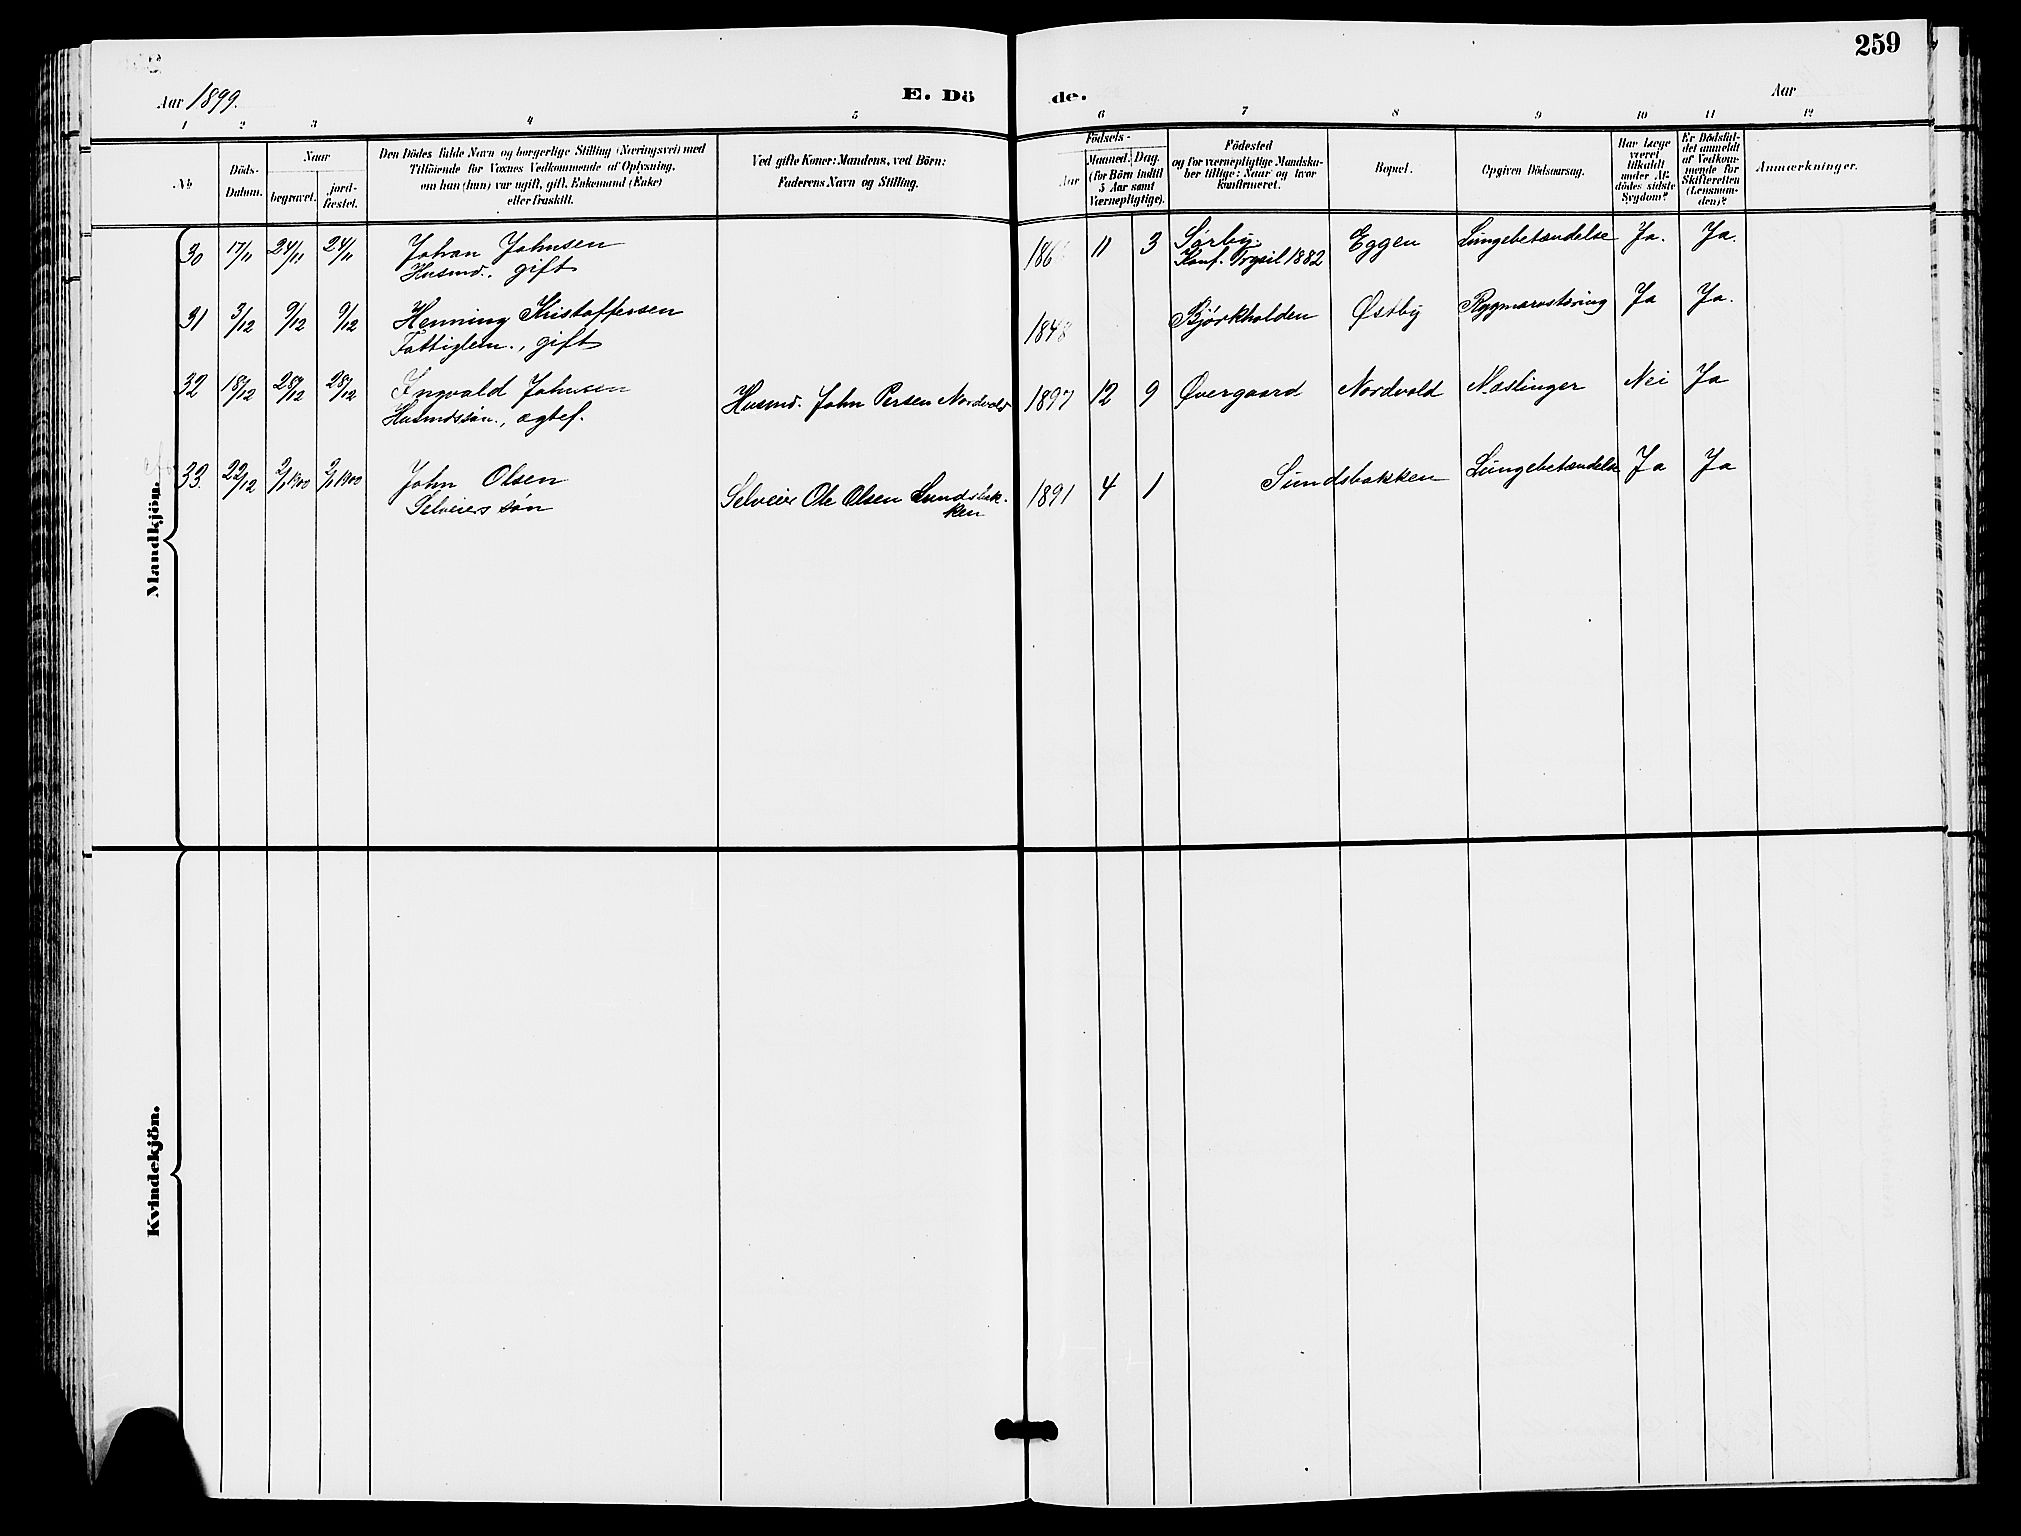 259
Aar 1899.
E. Dö
de.
Aar
1 2 3 4 5 6 7 8 9 10 11 12
No
Döds-
Datum.
Naar
begravet.
jord-
fæstet.
Den Dödes fulde Navn og borgerlige Stilling (Næringsvei) med
Tilföiende for Voxnes Vedkommende af Oplysning,
om han (hun) var ugift, gift, Enkemand (Enke)
eller fraskilt.
Ved gifte Koner: Mandens, ved Börn:
Faderens Navn og Stilling.
Födsels-
Aar
Maaned. Dag.
(for Börn indtil
5 Aar samt
Værnepligtige).
Födested
og for værnepligtige Mandska-
ber tillige: Naar og hvor
konfirmeret.
Bopæl.
Opgiven Dödsaarsag.
Har Læge
været
tilkaldt
under Af-
dödes sidste
Sygdom?
Er Dödsfal-
det anmeldt
af Vedkom-
mende for
Skifteretten
(Lensman-
den)?
Anmærkninger.
Mandkjön.
30 17/11 24/11 24/11 Johan Johnsen 186 11 3 Sørby. Eggen Lungebetændelse Ja. Ja.
Husmd. gift Konf. Trysil 1882
31 3/12 9/12 9/12 Henning Kristoffersen 1848 Bjørkholden Østby Rygmarvstæring Ja Ja.
Fattiglem., gift
32 18/12 28/12 28/12 Ingvald Johnsen Husmd. John Persen Nordvold 1897 12 9 Øvergaard Nordvold Mæslinger Nei Ja
Husmdssøn., ægtef.
33. 22/12 2/1 1900 2/1 1900 John Olsen Selveier Ole Olsen Sundsbak- 1891 4 1 Sundsbakken Lungebetændelse Ja Ja
Selveiers søn ken
Kvindekjön.